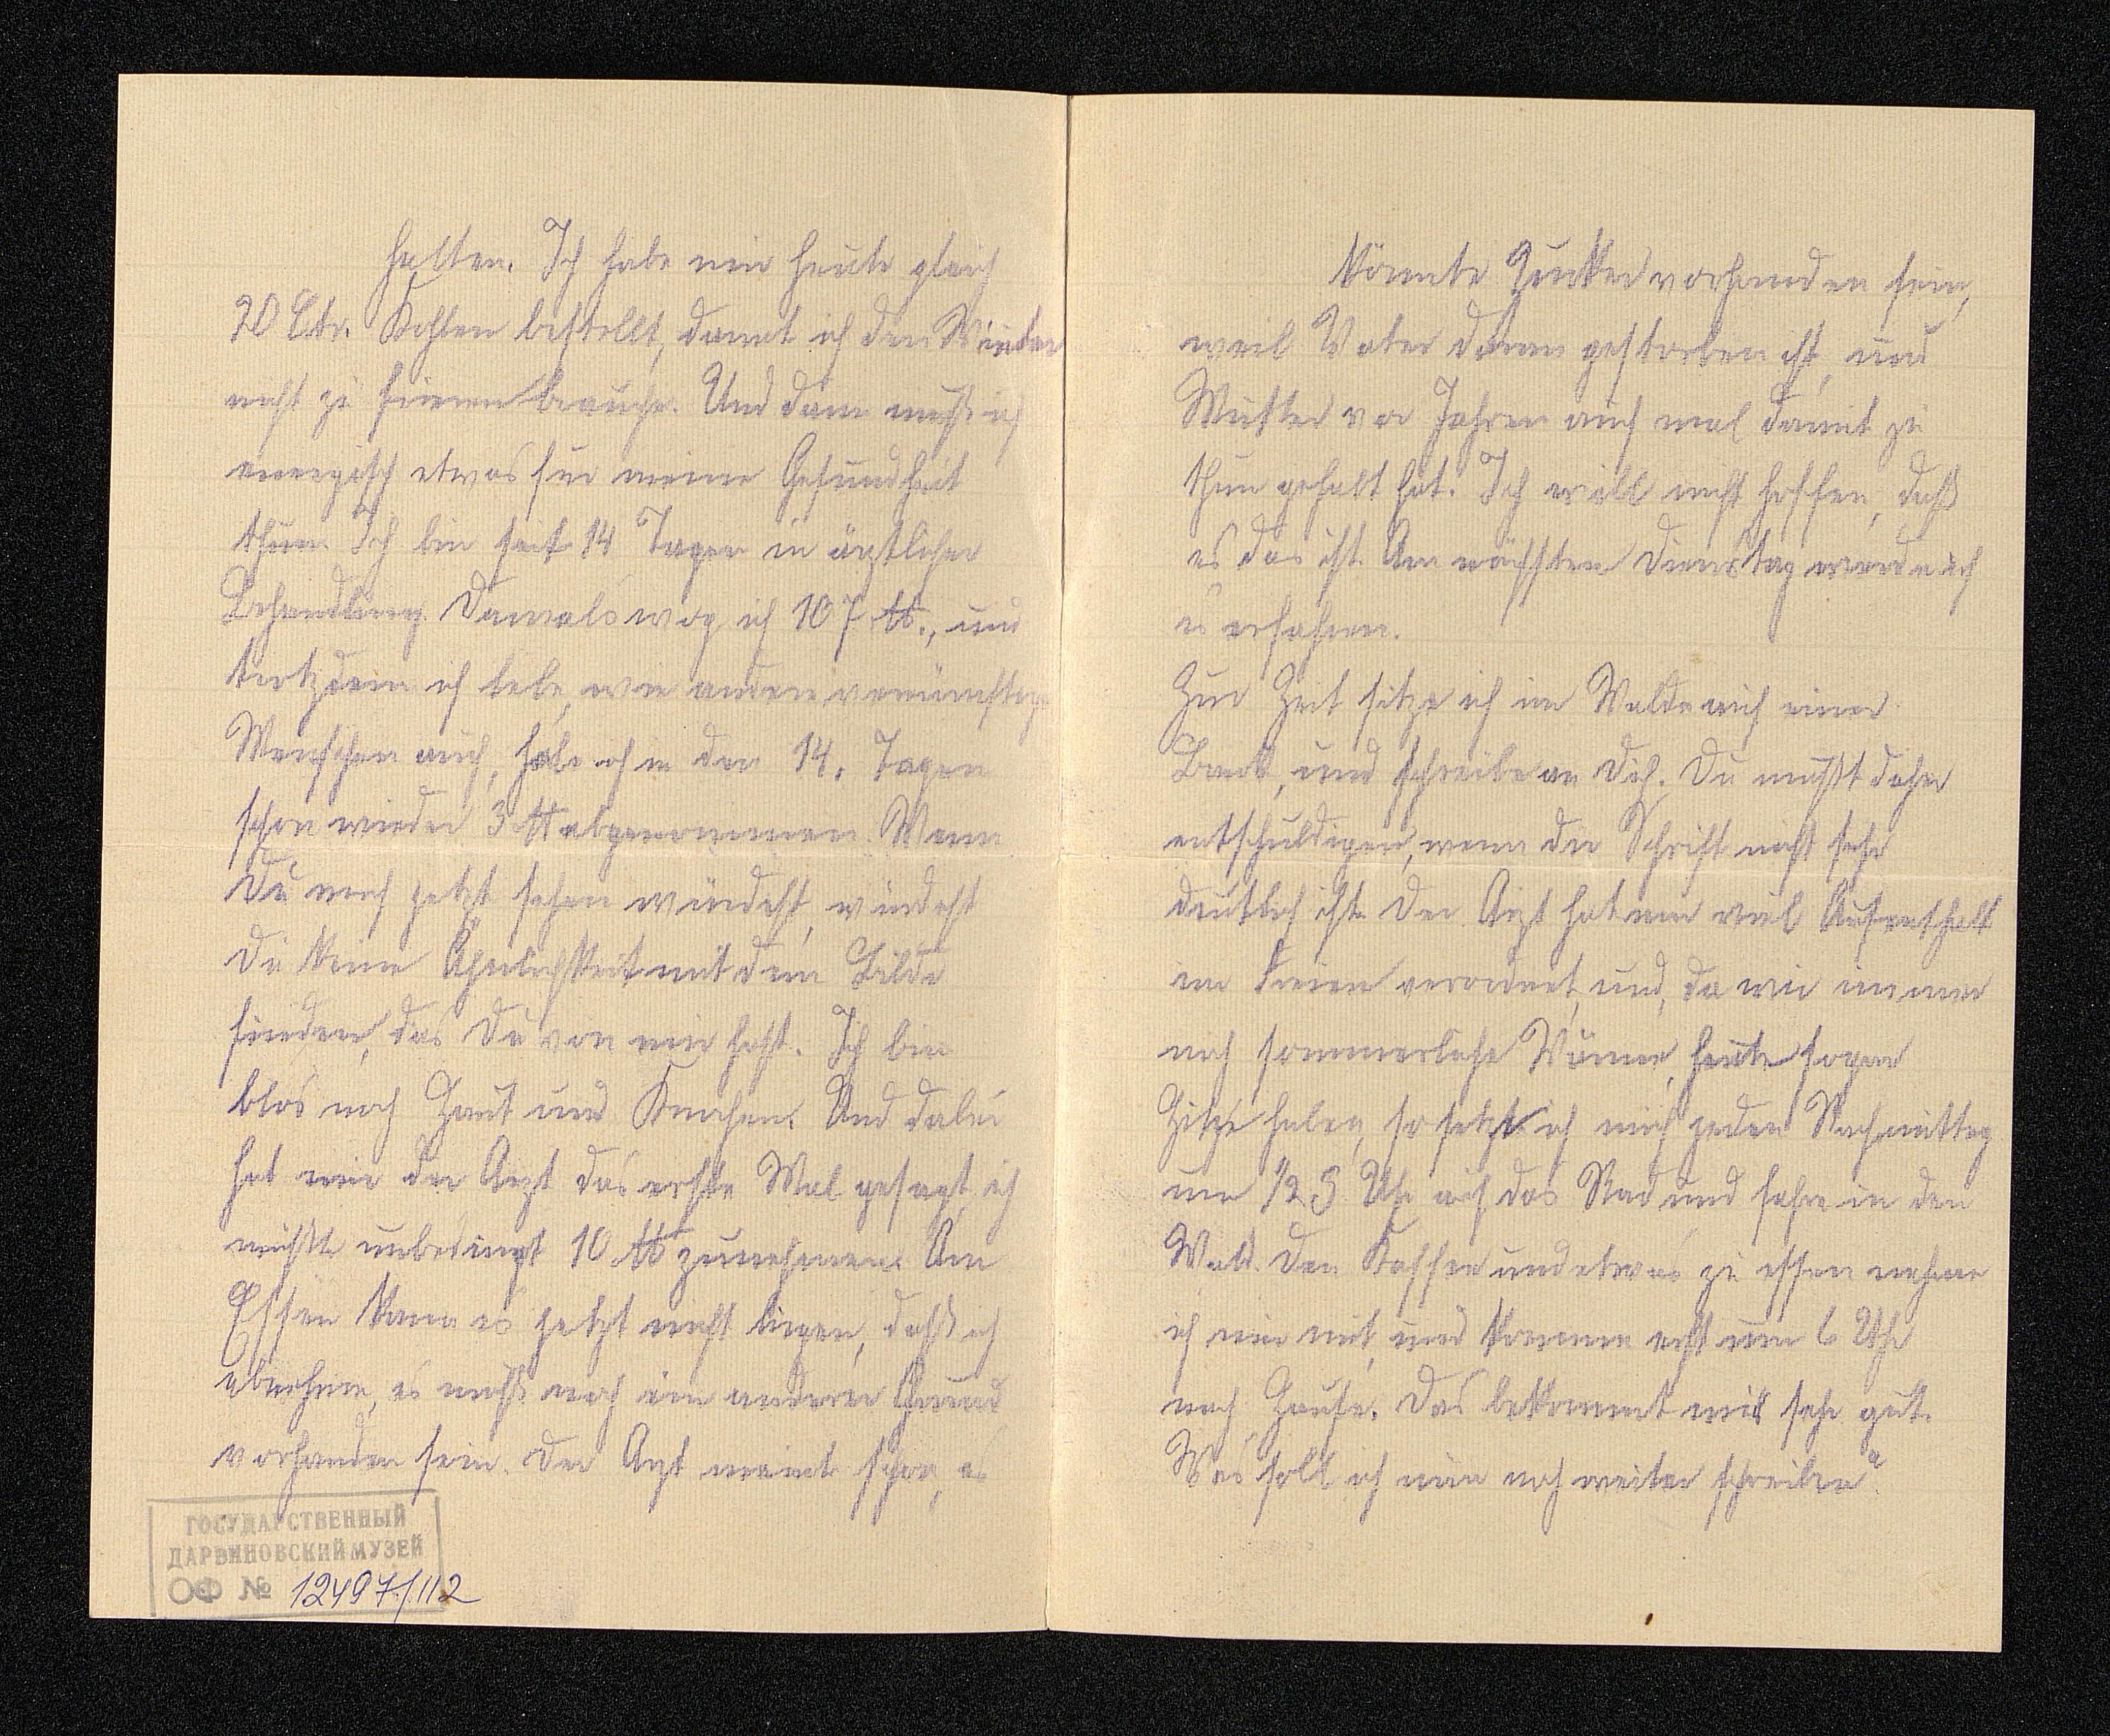 halten. Ich habe mir heute gleich
20 Ctr. Kohlen bestellt, damit ich den Winter
nicht zu frieren brauche. Und dann muß ich
energisch etwas für meine Gesundheit
thun. Ich bin seit 14 Tagen in ärztlicher
Behandlung. Damals wog ich 107 ℔., und
trotzdem ich lebe, wie andere vernünftige
Menschen auch, habe ich in den 14. Tagen
schon wieder 3 ℔ abgenommen. Wenn
Du mich jetzt sehen würdest, würdest
Du keine Ähnlichkeit mit dem Bilde
finden, das Du von mir hast. Ich bin
blos noch Haut und Knochen. Und dabei
hat mir der Arzt das erste Mal gesagt, ich
müßte unbedingt 10 ℔ zunehmen. Am
Essen kann es jetzt nicht liegen, daß ich
abnehme, es muß noch ein anderer Grund
vorhanden sein. Der Arzt meinte schon, es
ГОСУДАРСТВЕННЫЙ
ДАРВИНОВСКИЙ МУЗЕЙ
ОФ № 12497/112
könnte Zucker vorhanden sein,
weil Vater daran gestorben ist, und
Mutter vor Jahren auch mal damit zu
thun gehabt hat. Ich will nicht hoffen, daß
es das ist. Am nächsten Dienstag werde ich
es erfahren.
Zur Zeit sitze ich im Walde auf einer
Bank, und schreibe an Dich. Du mußt daher
entschuldigen, wenn die Schrift nicht sehr
deutlich ist. Der Arzt hat mir viel Aufenthalt
im Freien verordnet, und, da wir immer
noch sommerliche Wärme, heute sogar
Hitze haben, so setze ich mich jeden Nachmittag
um 1/2 3 Uhr auf das Rad und fahre in den
Wald. Den Kaffee und etwas zu essen nehme
ich mir mit, und komme erst um 6 Uhr
nach Hause. Das bekommt mir sehr gut.
Was soll ich nun noch weiter schreiben?